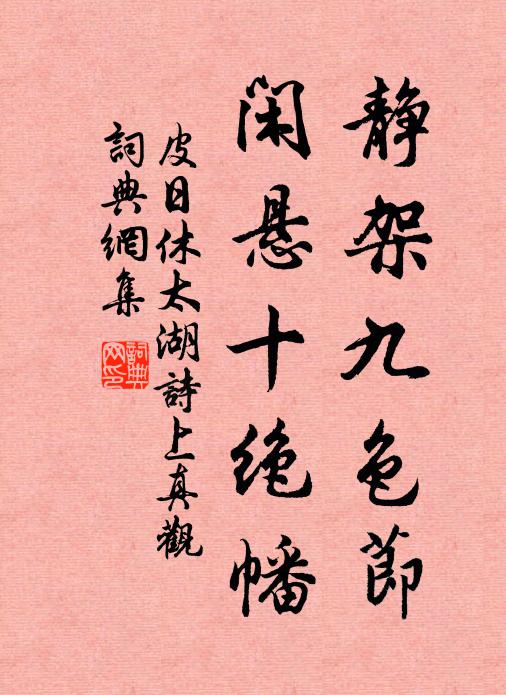 静架九色節
閑悬十绝幡
皮日休太湖詩上真觀
詞典網集
詞典网印